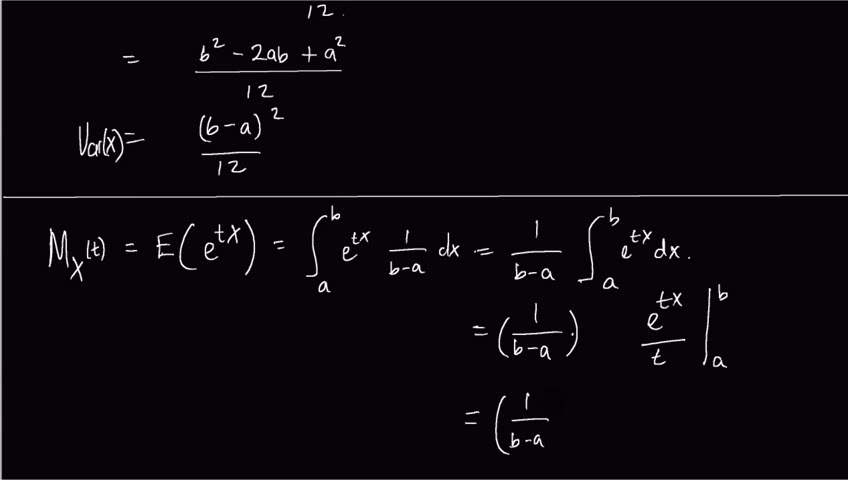 12.
= b² - 2ab + a² / 12
Var(X) = (b-a)² / 12
M_X(t) = E(e^{tX}) = ∫_a^b e^{tx} 1/(b-a) dx = 1/(b-a) ∫_a^b e^{tx} dx.
= (1/(b-a) ·) e^{tx}/t |_a^b
= (1/(b-a)